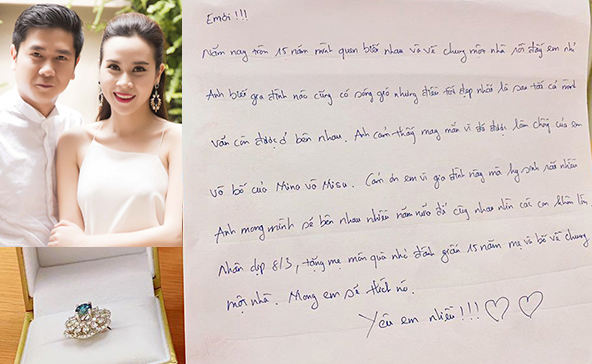 Em ơi!!!
Năm nay tròn 15 năm mình quen biết nhau và về chung một nhà rồi đấy em nhỉ
Anh biết gia đình nào cũng có sóng gió nhưng điều tốt đẹp nhất là sau tất cả mình
vẫn còn được ở bên nhau. Anh cảm thấy may mắn vì đã được làm chồng của em
và bố của Mina và Misu. Cảm ơn em vì gia đình này mà hy sinh rất nhiều
Anh mong mình sẽ bên nhau nhiều năm nữa để cùng nhau nhìn các con khôn lớn.
Nhân dịp 8/3, tặng mẹ món quà nhỏ đánh dấu 15 năm mẹ và bố về chung
một nhà. Mong em sẽ thích nó.
Yêu em nhiều!!!